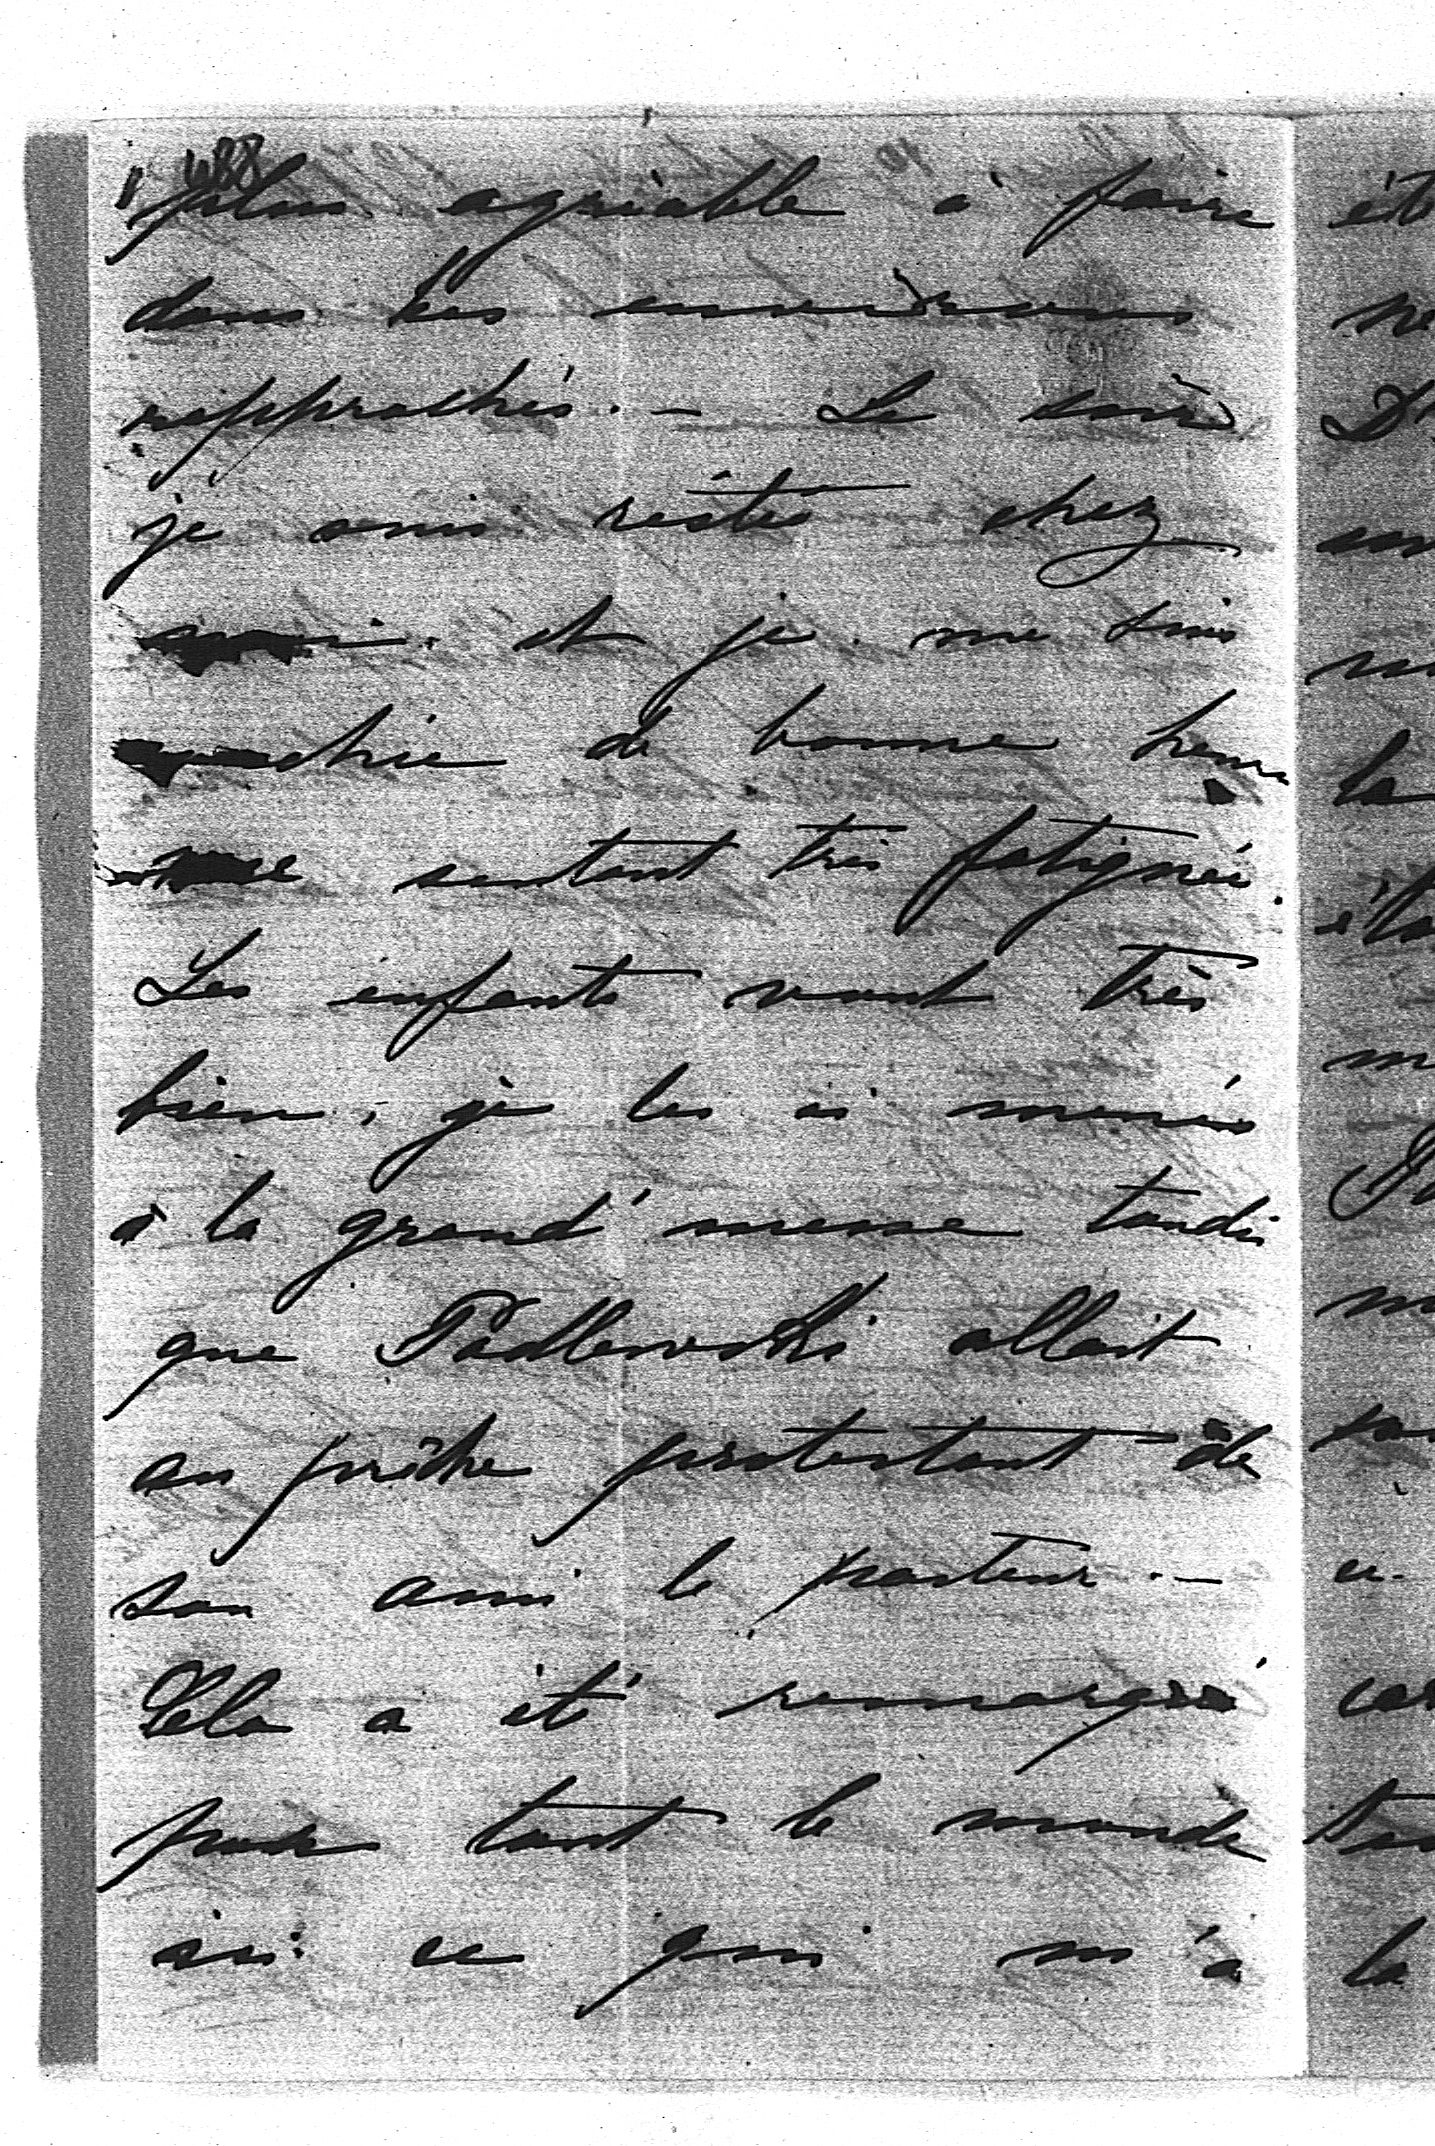 488
plus agréable à faire
dans les environs
rapprochés. — Le soir
je suis restée chez
moi et je me suis
couchée de bonne heure
me sentant très fatiguée.
Les enfants vont très
bien, je les ai menés
à la grand'messe tandis
que Padlewski allait
au prêche protestant de
son ami le pasteur. —
Cela a été remarqué
par tout le monde
ici ce qui m'a